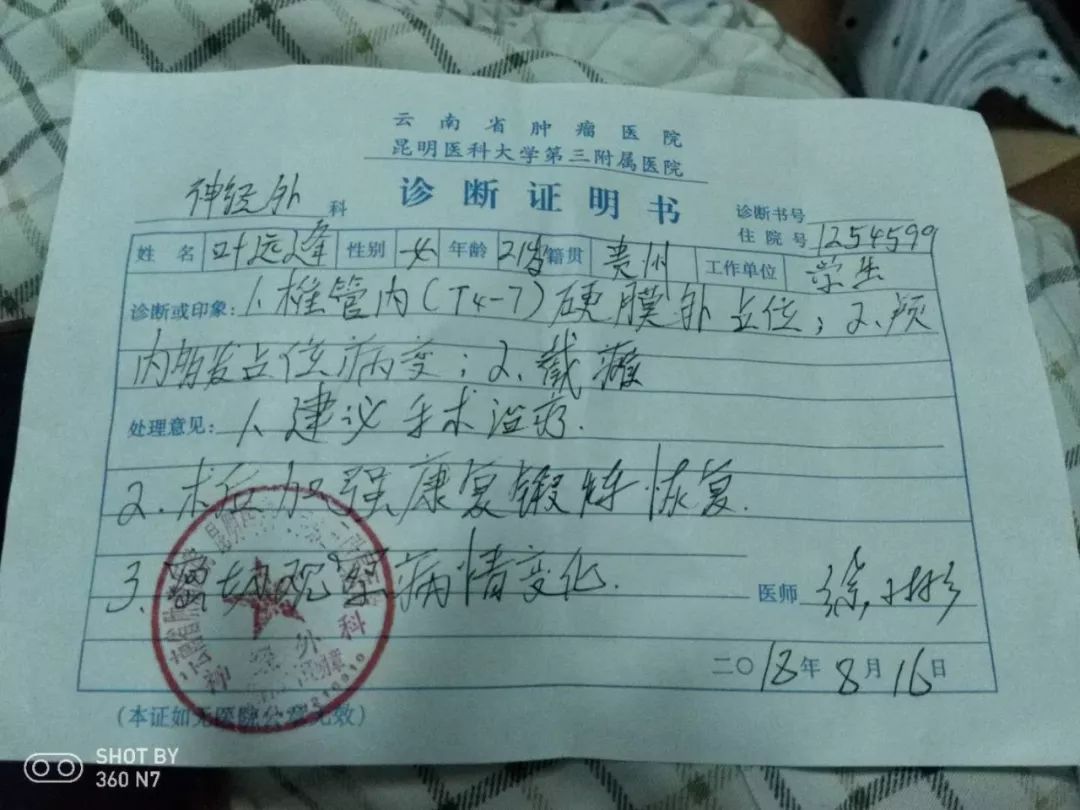 云南省肿瘤医院
昆明医科大学第三附属医院
诊断证明书
神经外科
诊断书号
住院号 1254599
姓名 叶远逢 性别 女 年龄 21岁 籍贯 贵州 工作单位 学生
诊断或印象：1、椎管内(T4-7)硬膜外占位；2、颅
内多发占位病变；2、截瘫
处理意见：1、建议手术治疗.
2.术后加强康复锻炼恢复.
3.密切观察病情变化.
医师
二〇18年8月16日
神经外科
(本证如无医院公章无效)
SHOT BY
360 N7